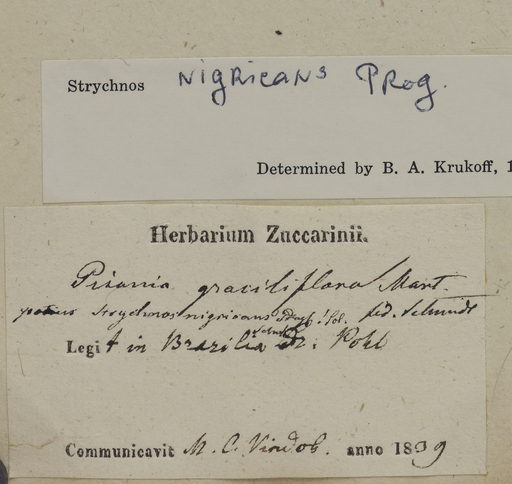 Strychnos nigricans Prog.
Determined by B. A. Krukoff, 1
Herbarium Zuccarinii.
Pisonia graciliflora Mart.
potius Strychnos nigricans ! sec. fid. Schmidt
Legit in Brazilia Dr. Pohl
Communicavit M. C. Vindob. anno 1839